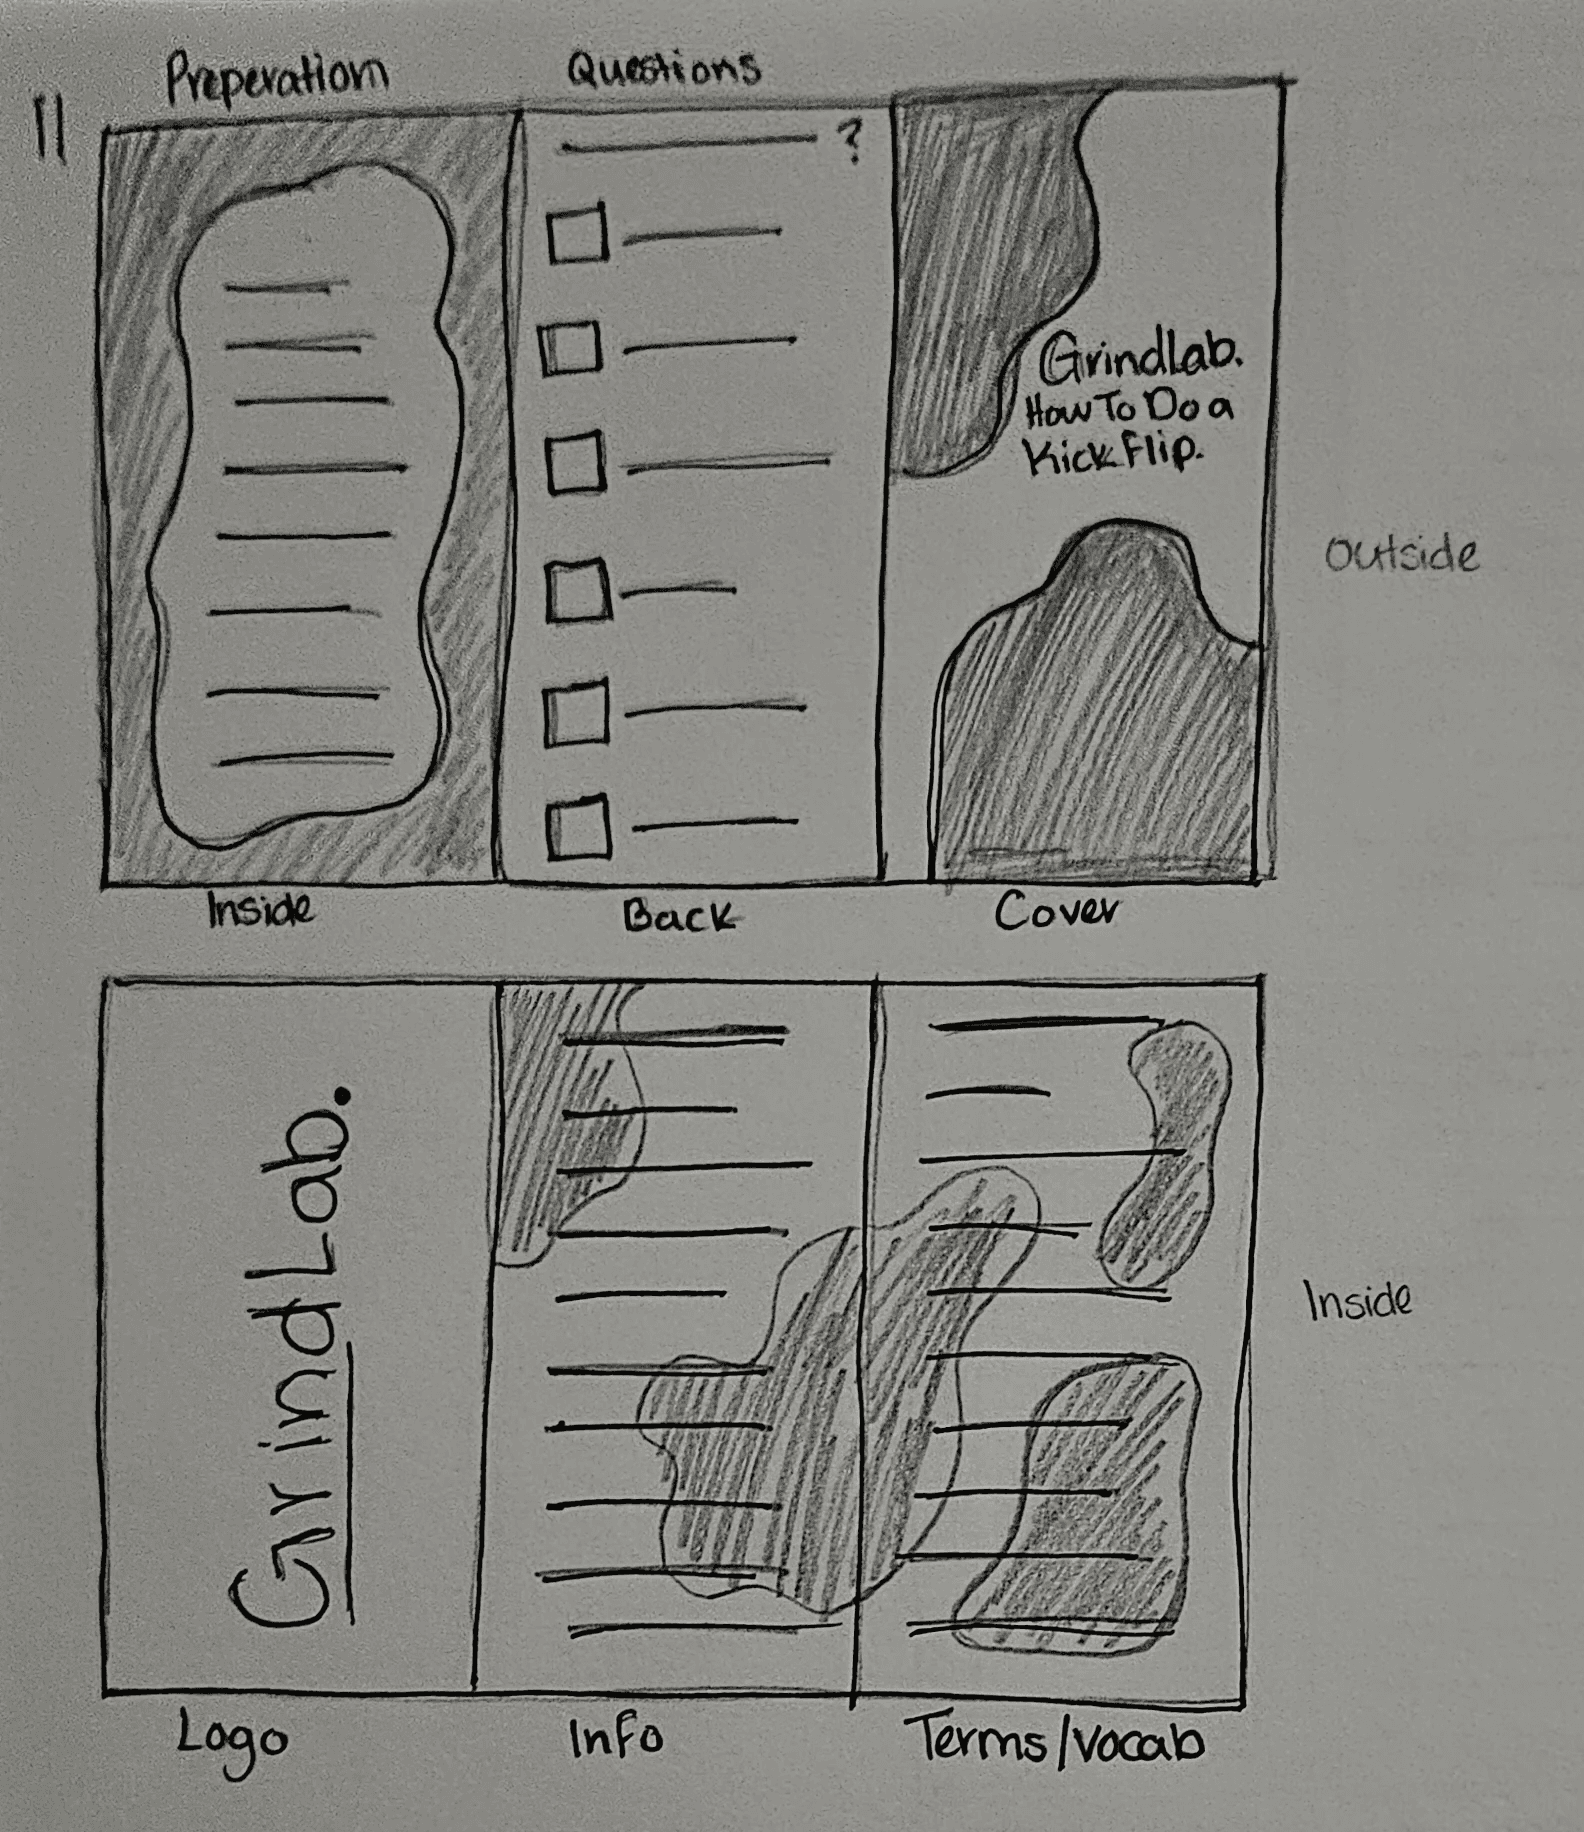 11
Preperation
Questions
?
GrindLab.
How To Do a
Kick Flip.
Outside
Inside
Back
Cover
GrindLab.
Inside
Logo
Info
Terms/Vocab